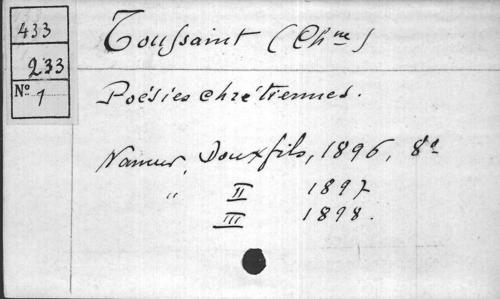 433
233
Nº 1
Toussaint (Chne)
Poésies chrétiennes.
Namur, Douxfils, 1896, 8º
" II 1897
III 1898.